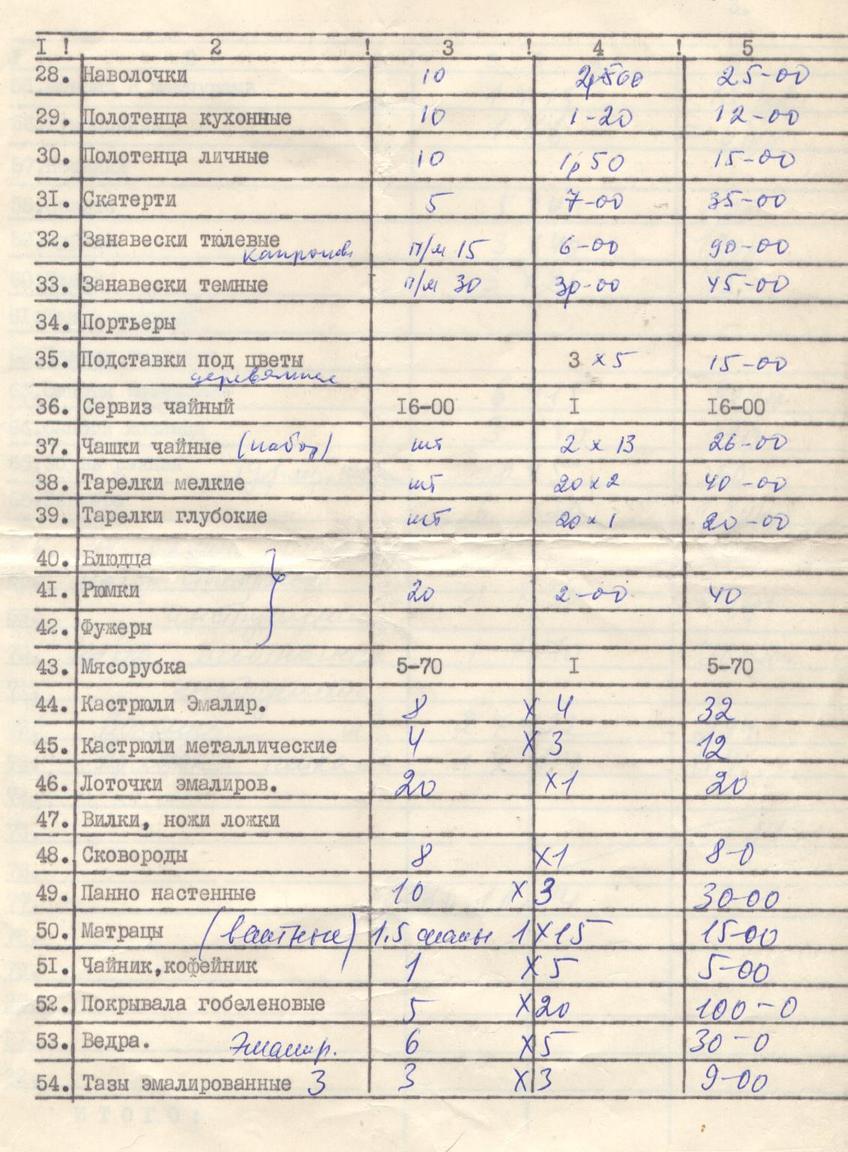 I ! 2 ! 3 ! 4 ! 5
28. Наволочки 10 25-00
29. Полотенца кухонные 10 1-20 12-00
30. Полотенца личные 10 1р50 15-00
31. Скатерти 5 7-00 35-00
32. Занавески тюлевые п/м 15 6-00 90-00
капронов
33. Занавески темные п/м 30 45-00
34. Портьеры
35. Подставки под цветы 3 х 5 15-00
деревянные
36. Сервиз чайный I6-00 I I6-00
37. Чашки чайные (набор) шт 2 х 13 26-00
38. Тарелки мелкие шт 20х2 40-00
39. Тарелки глубокие шт 20х1 20-00
40. Блюдца
41. Рюмки 20 2-00 40
42. Фужеры
43. Мясорубка 5-70 I 5-70
44. Кастрюли Эмалир. 8 х 4 32
45. Кастрюли металлические 4 х 3 12
46. Лоточки эмалиров. 20 х1 20
47. Вилки, ножи ложки
48. Сковороды 8 х1 8-0
49. Панно настенные 10 х 3 30-00
50. Матрацы (ватные) 1.5 спальн 1х15 15-00
51. Чайник,кофейник 1 х 5 5-00
52. Покрывала гобеленовые 5 х20 100-0
53. Ведра. Эмалир. 6 х5 30-0
54. Тазы эмалированные 3 3 х3 9-00
ИТОГО: